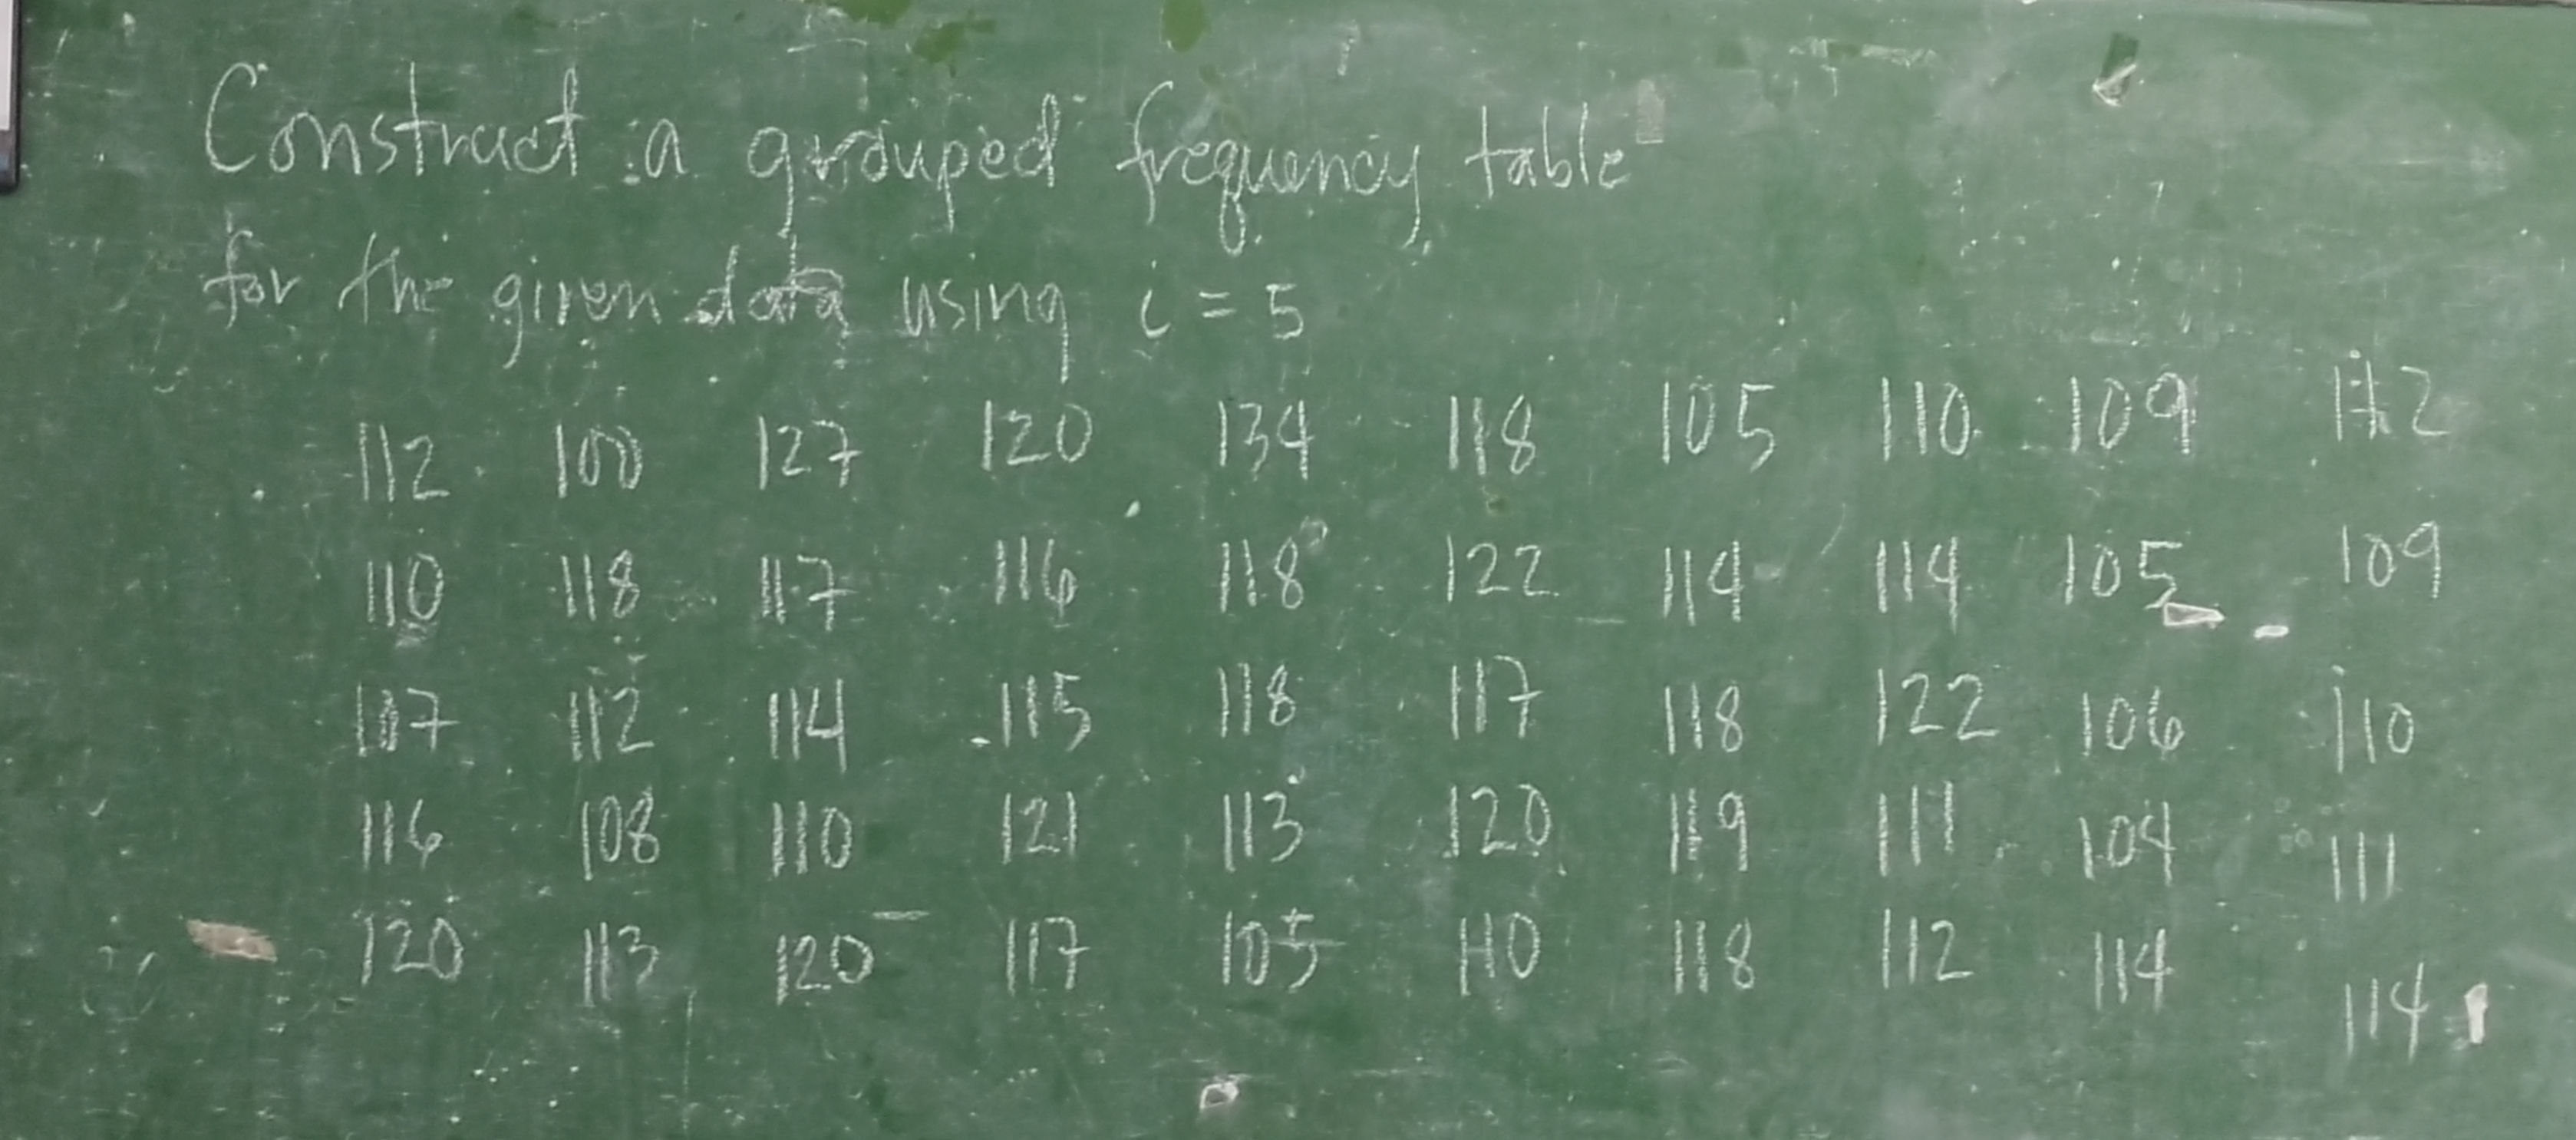 Construct a grouped frequency table
for the given data using i = 5
112 100 127 120 134 118 105 110 109 112
110 118 117 116 118 122 114 114 105 109
107 112 114 115 118 117 118 122 106 110
116 108 110 121 113 120 119 111 104 111
120 113 120 117 105 110 118 112 114 114